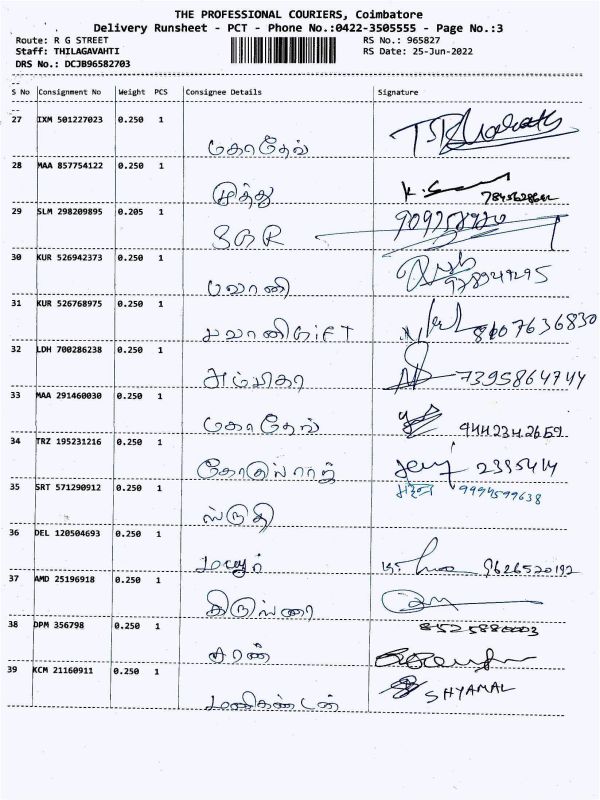 THE PROFESSIONAL COURIERS, Coimbatore
Delivery Runsheet - PCT - Phone No.:0422-3505555 - Page No.:3
Route: R G STREET RS No.: 965827
Staff: THILAGAVAHTI RS Date: 25-Jun-2022
DRS No.: DCJB96582703
S No Consignment No Weight PCS Consignee Details Signature
27 IXM 501227023 0.250 1
மகாதேவ்
28 MAA 857754122 0.250 1
முத்து
29 SLM 298209895 0.205 1
SGR
30 KUR 526942373 0.250 1
பவானி
31 KUR 526768975 0.250 1
பவானி GIFT 8607636830
32 LDH 700286238 0.250 1
அம்பிகா 7395864744
33 MAA 291460030 0.250 1
மகாதேவ் 9442342659
34 TRZ 195231216 0.250 1
கோகுல்ராஜ் 2395414
35 SRT 571290912 0.250 1 9994599638
ஸ்ருதி
36 DEL 120504693 0.250 1
மயூர் 9626520192
37 AMD 25196918 0.250 1
38 DPM 356798 0.250 1
சரண்
39 KCM 21160911 0.250 1
மணிகண்டன் SHYAMAL